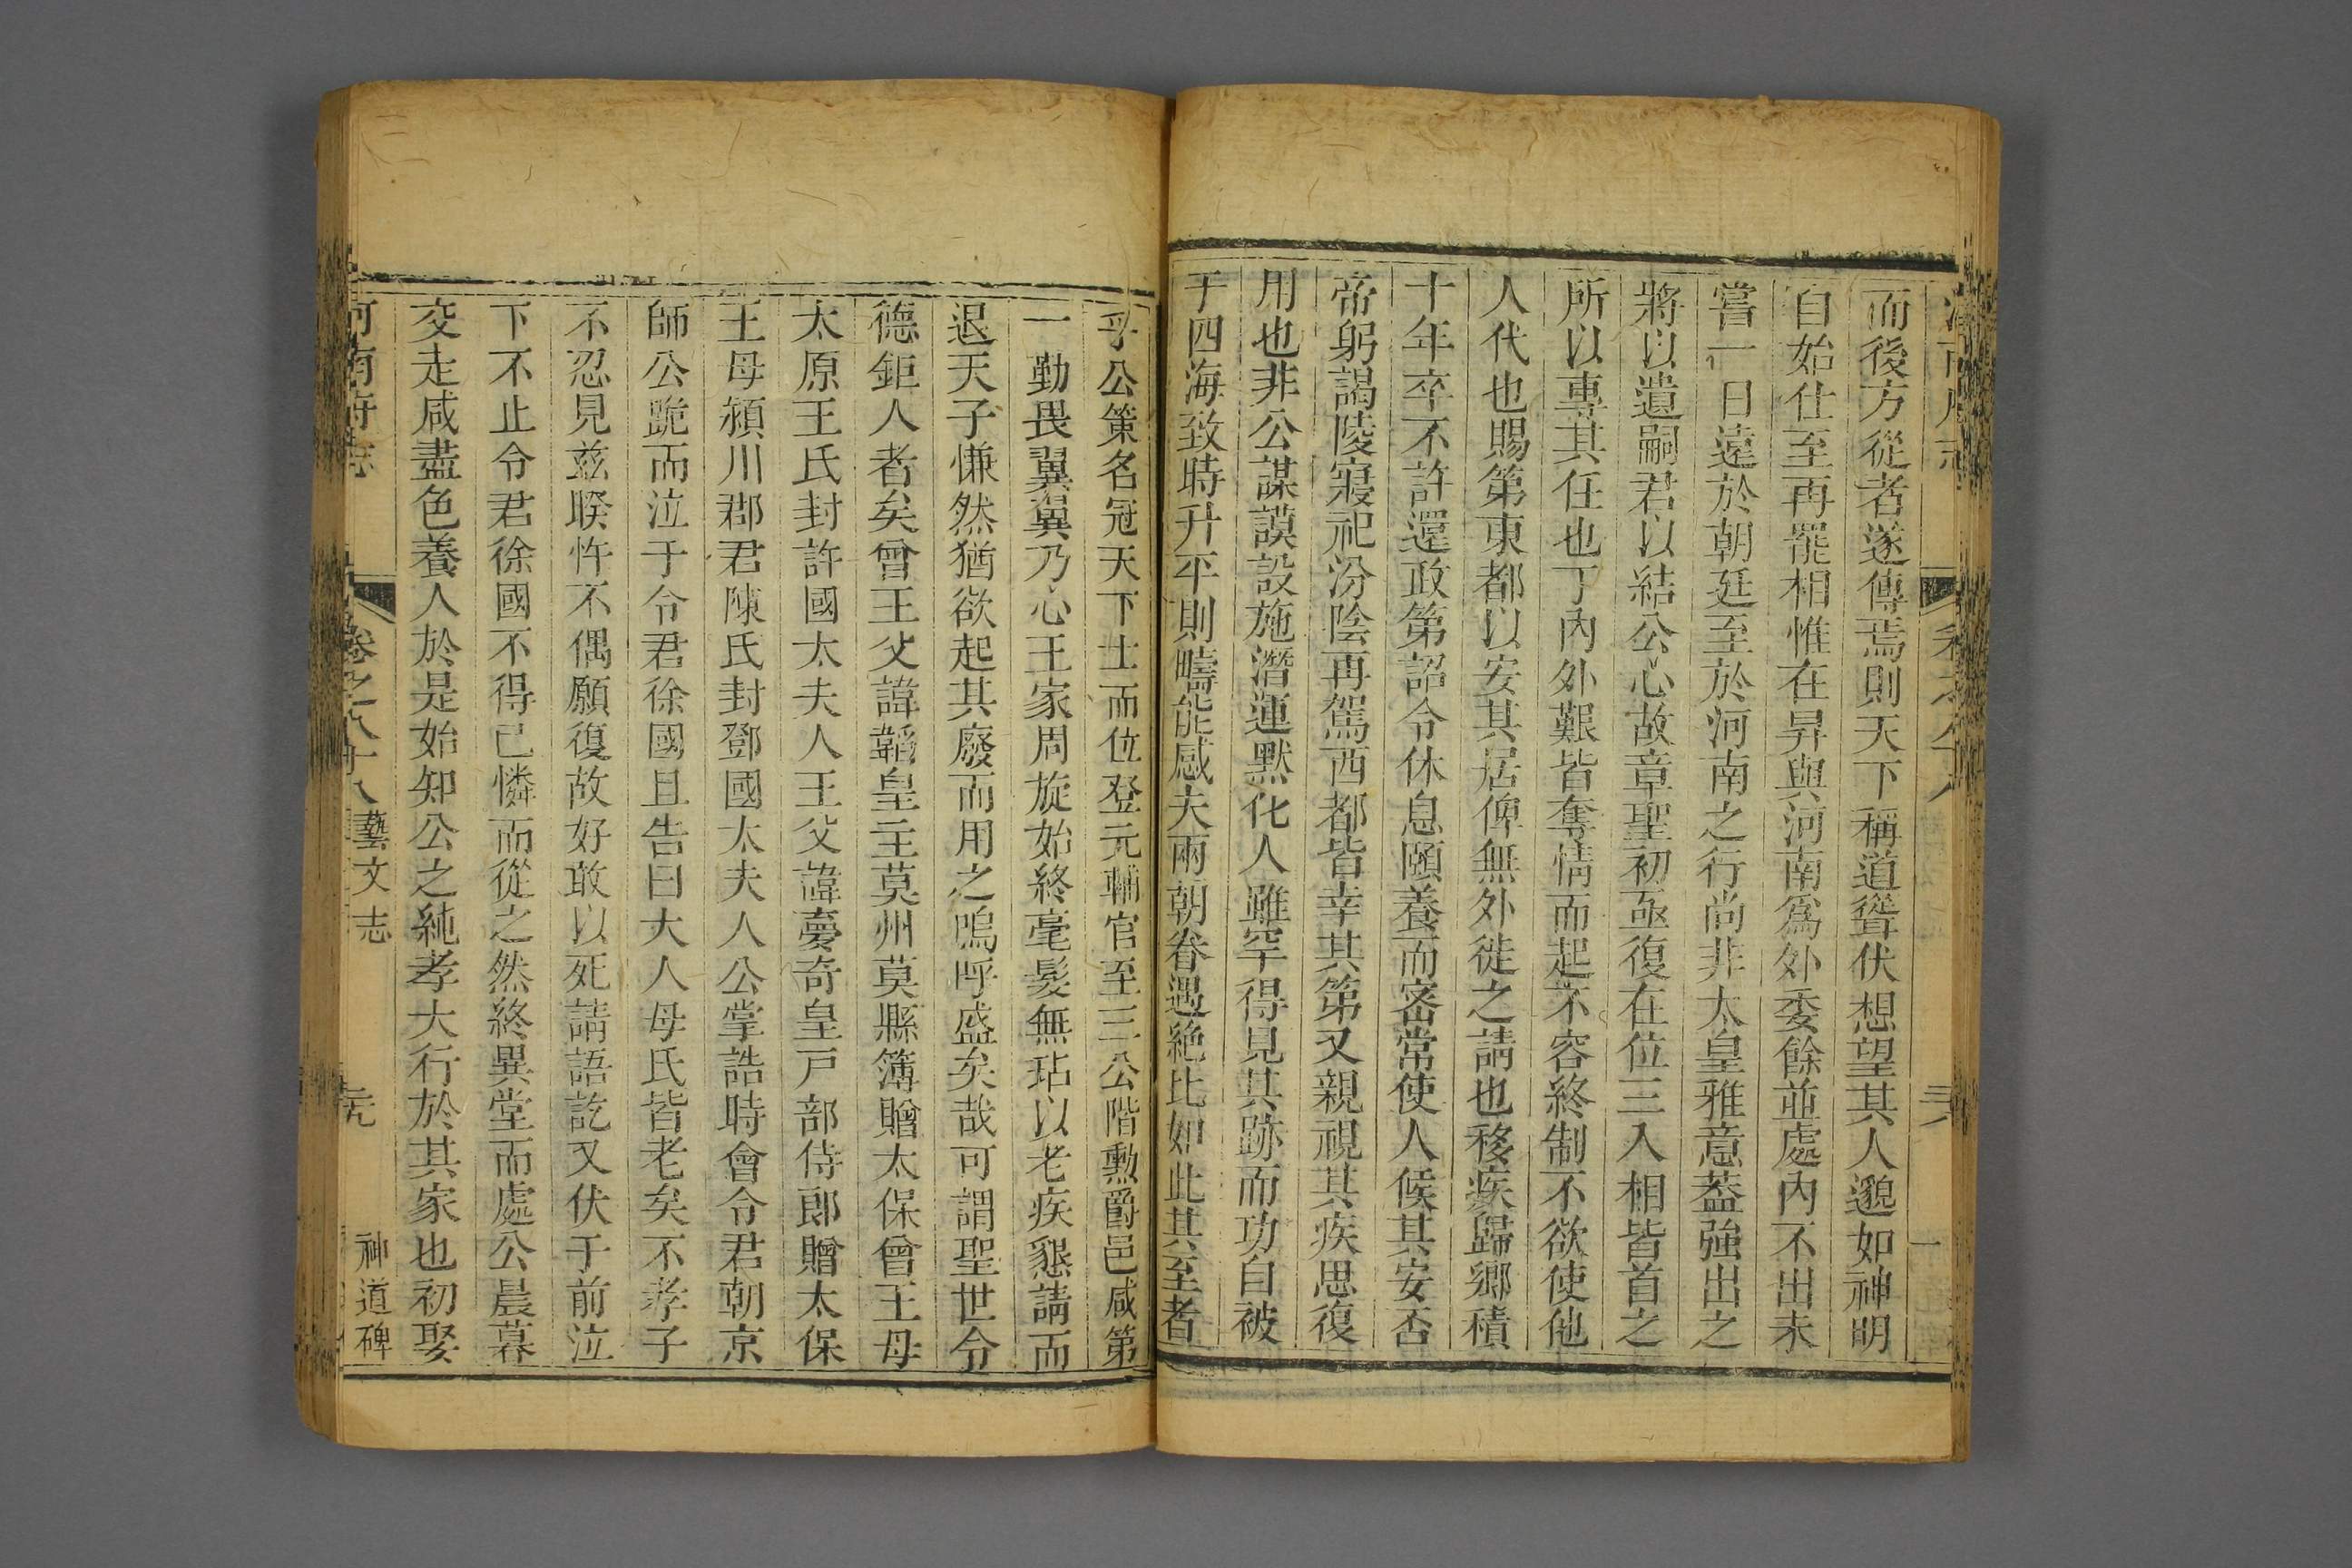 而後方從者遂傳焉則天下稱道聳伏想望其人邈如神明
自始仕至再罷相惟在昇與河南爲外委餘並處內不出未
嘗一日遠於朝廷至於河南之行尚非太皇雅意蓋強出之
將以遺嗣君以結公心故章聖初亟復在位三入相皆首之
所以專其任也丁內外艱皆奪情而起不容終制不欲使他
人代也賜第東都以安其居俾無外徙之請也移疾歸鄉積
十年卒不許還政第詔令休息頤養而密常使人候其安否
帝躬謁陵寢祀汾陰再駕西都皆幸其第又親視其疾思復
用也非公謀謨設施潛運默化人雖罕得見其跡而功自被
于四海致時升平則疇能感夫兩朝眷遇絕比如此其至者
乎公策名冠天下士而位登元輔官至三公階勳爵邑咸第
一勤畏翼翼乃心王家周旋始終毫髮無玷以老疾懇請而
退天子慊然猶欲起其廢而用之嗚呼盛矣哉可謂聖世令
德鉅人者矣曾王父諱韜皇主莫州莫縣簿贈太保曾王母
太原王氏封許國太夫人王父諱夢奇皇戸部侍郎贈太保
王母潁川郡君陳氏封鄧國太夫人公掌誥時會令君朝京
師公跪而泣于令君徐國且告曰大人母氏皆老矣不孝子
不忍見兹睽忤不偶願復故好敢以死請語訖又伏于前泣
下不止令君徐國不得已憐而從之然終異堂而處公晨暮
交走咸盡色養人於是始知公之純孝大行於其家也初娶
河南府志 卷之八十八 藝文志 神道碑